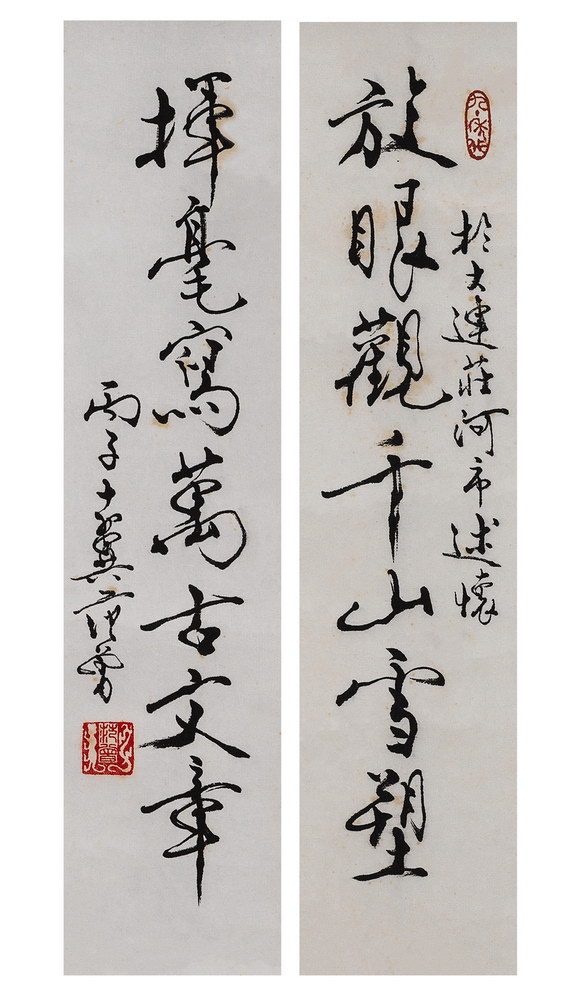 於大連莊河市述懷
放眼觀千山雪塑
揮毫寫萬古文章
丙子十翼范曾